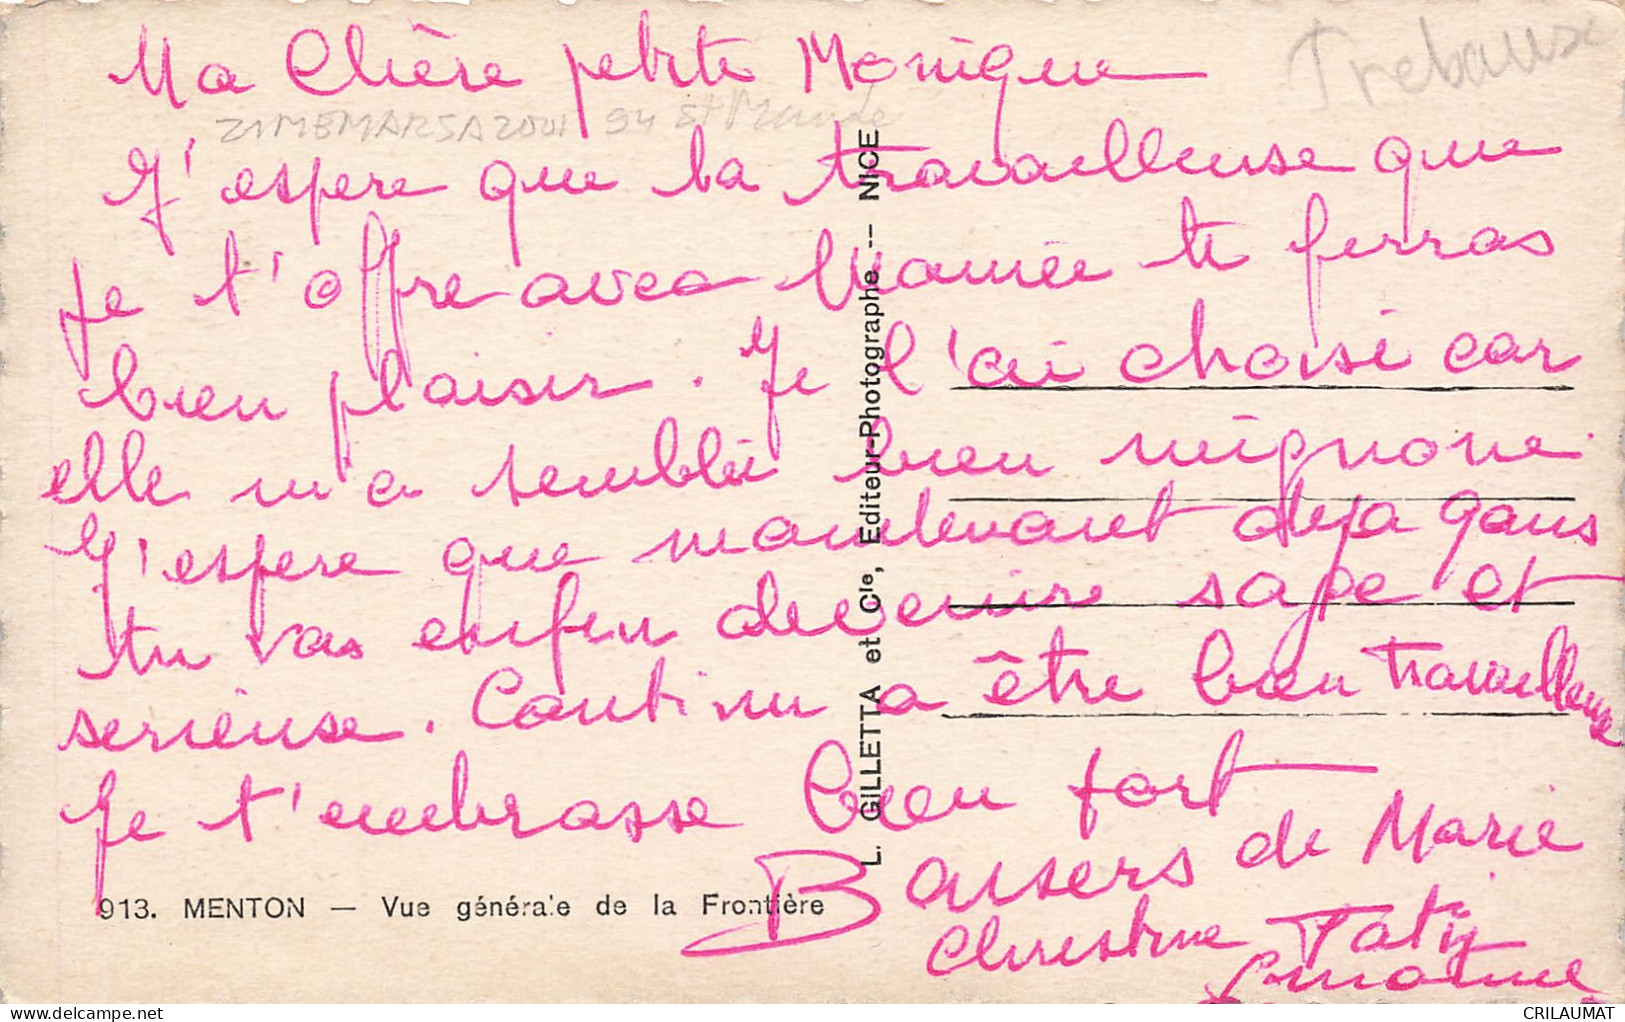 Ma Chère petite Monique
Trebaux
21MEMARSA2001 94 St Mande
J'espere que la travailleuse que
je t'offre avec Mamée te ferras
bien plaisir. Je l'ai choisi car
elle m'a semblée bien mignone.
J'espere que maintenant deja gans
tu vas enfin devenire sage et
serieuse. Continu a être bien travailleuse
Je t'embrasse bien fort
Baisers de Marie
Christine Taty
Simone
913. MENTON — Vue générale de la Frontière
L. GILLETTA et Cie, Editeur-Photographe -- NICE
delcampe.net
CRILAUMAT